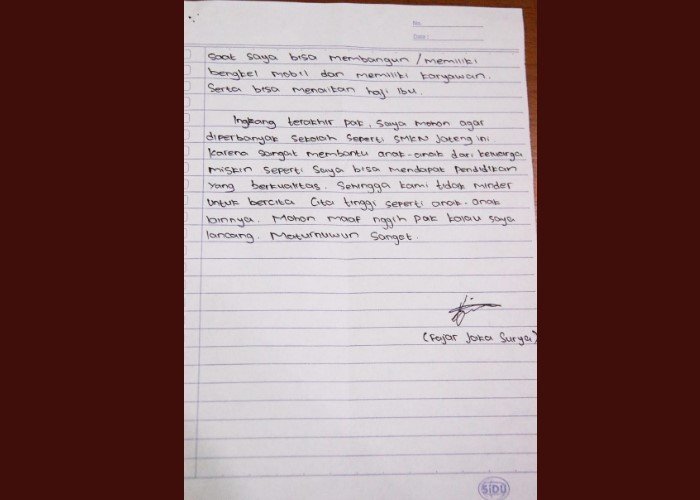 No.
Date :
saat saya bisa membangun / memiliki
bengkel mobil dan memiliki karyawan.
Serta bisa menaikan haji Ibu.
Ingkang terakhir pak, Saya mohon agar
diperbanyak sekolah seperti SMKN Jateng ini
karena sangat membantu anak-anak dari keluarga
miskin seperti saya bisa mendapat Pendidikan
yang berkualitas. Sehingga kami tidak minder
untuk bercita Cita tinggi seperti anak-anak
lainnya. Mohon maaf nggih pak kalau saya
lancang. Maturnuwun Sanget.
(Fajar Joka Surya)
SIDU